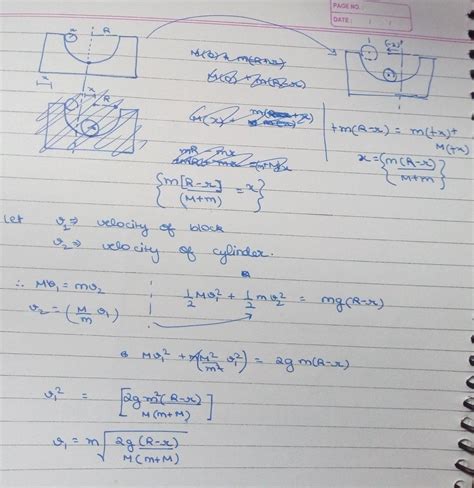 PAGE NO.:
DATE: / /
r R
x
x R
r (-x)
M(x) +
+m(R-r) = m(+x) + M(+x)
x = {m(R-r)/(M+m)}
{m[R-r]/(M+m) = x}
Let v₁ ⇒ velocity of block
v₂ ⇒ velocity of cylinder.
∴ Mv₁ = mv₂
v₂ = (M/m v₁)
1/2 Mv₁² + 1/2 mv₂² = mg(R-r)
Mv₁² + m(M²/m² v₁²) = 2gm(R-r)
v₁² = [2gm²(R-r)/M(m+M)]
v₁ = m√(2g(R-r)/M(m+M))